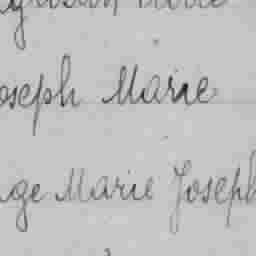 oseph Marie
ge Marie Joseph